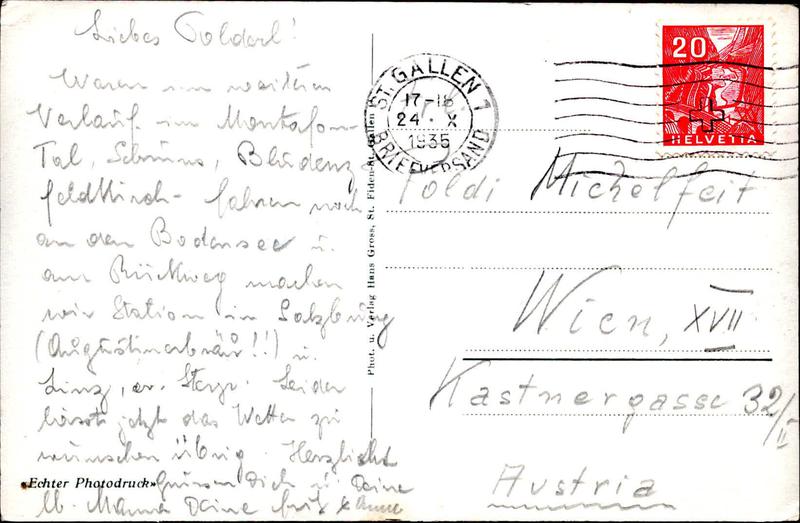 Liebes Polderl!
Waren im weiteren
Verlauf im Montafon
Tal, Schruns, Bludenz
Feldkirch - fahren noch
an den Bodensee u.
am Rückweg machen
wir Station in Salzburg
(Augustinerbräu!!) u.
Linz, ev. Steyr. Leider
lässt jetzt das Wetter zu
wünschen übrig. Herzlichst
Grüssen Dich u. Deine
lb. Mama Deine Fritz &
«Echter Photodruck»
Phot. u. Verlag Hans Gross, St. Fiden-St. Gallen
ST. GALLEN 1
17-18
24. X
1935
BRIEFVERSAND
20
HELVETIA
Poldi Michelfeit
Wien, XVII
Kastnergasse 32/II
Austria